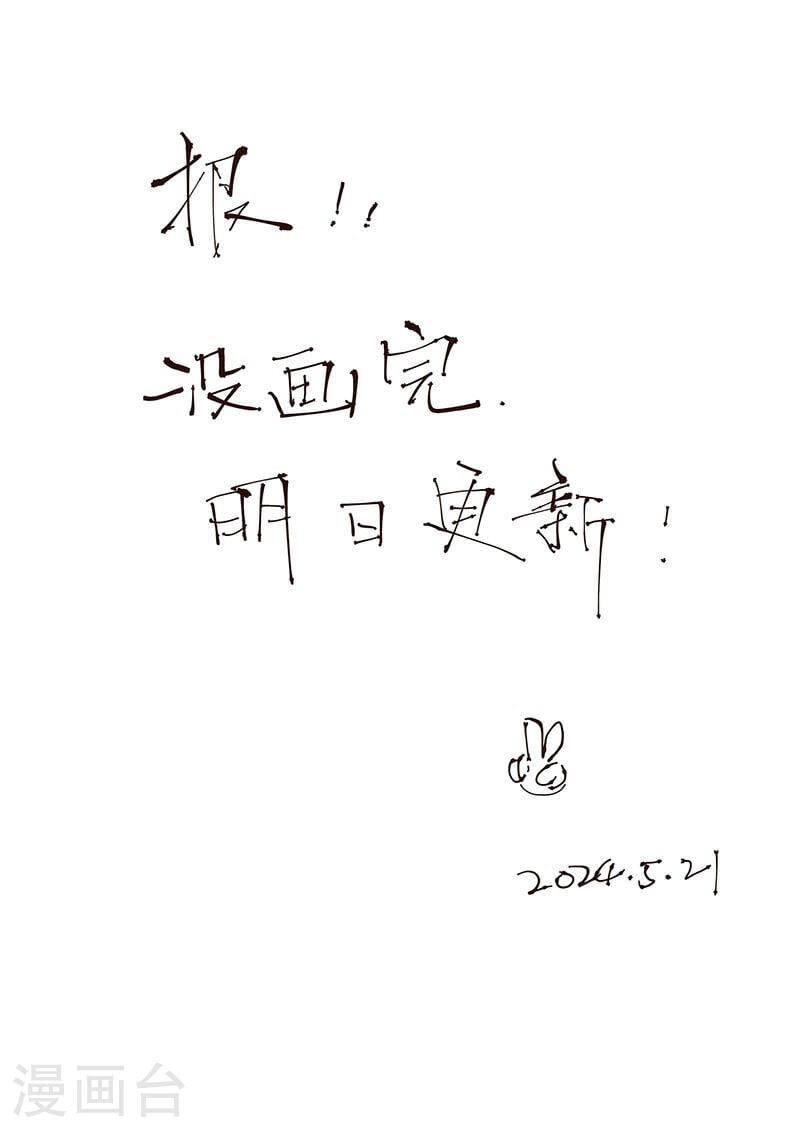 报!!
没画完.
明日更新!
2024.5.21
漫画台